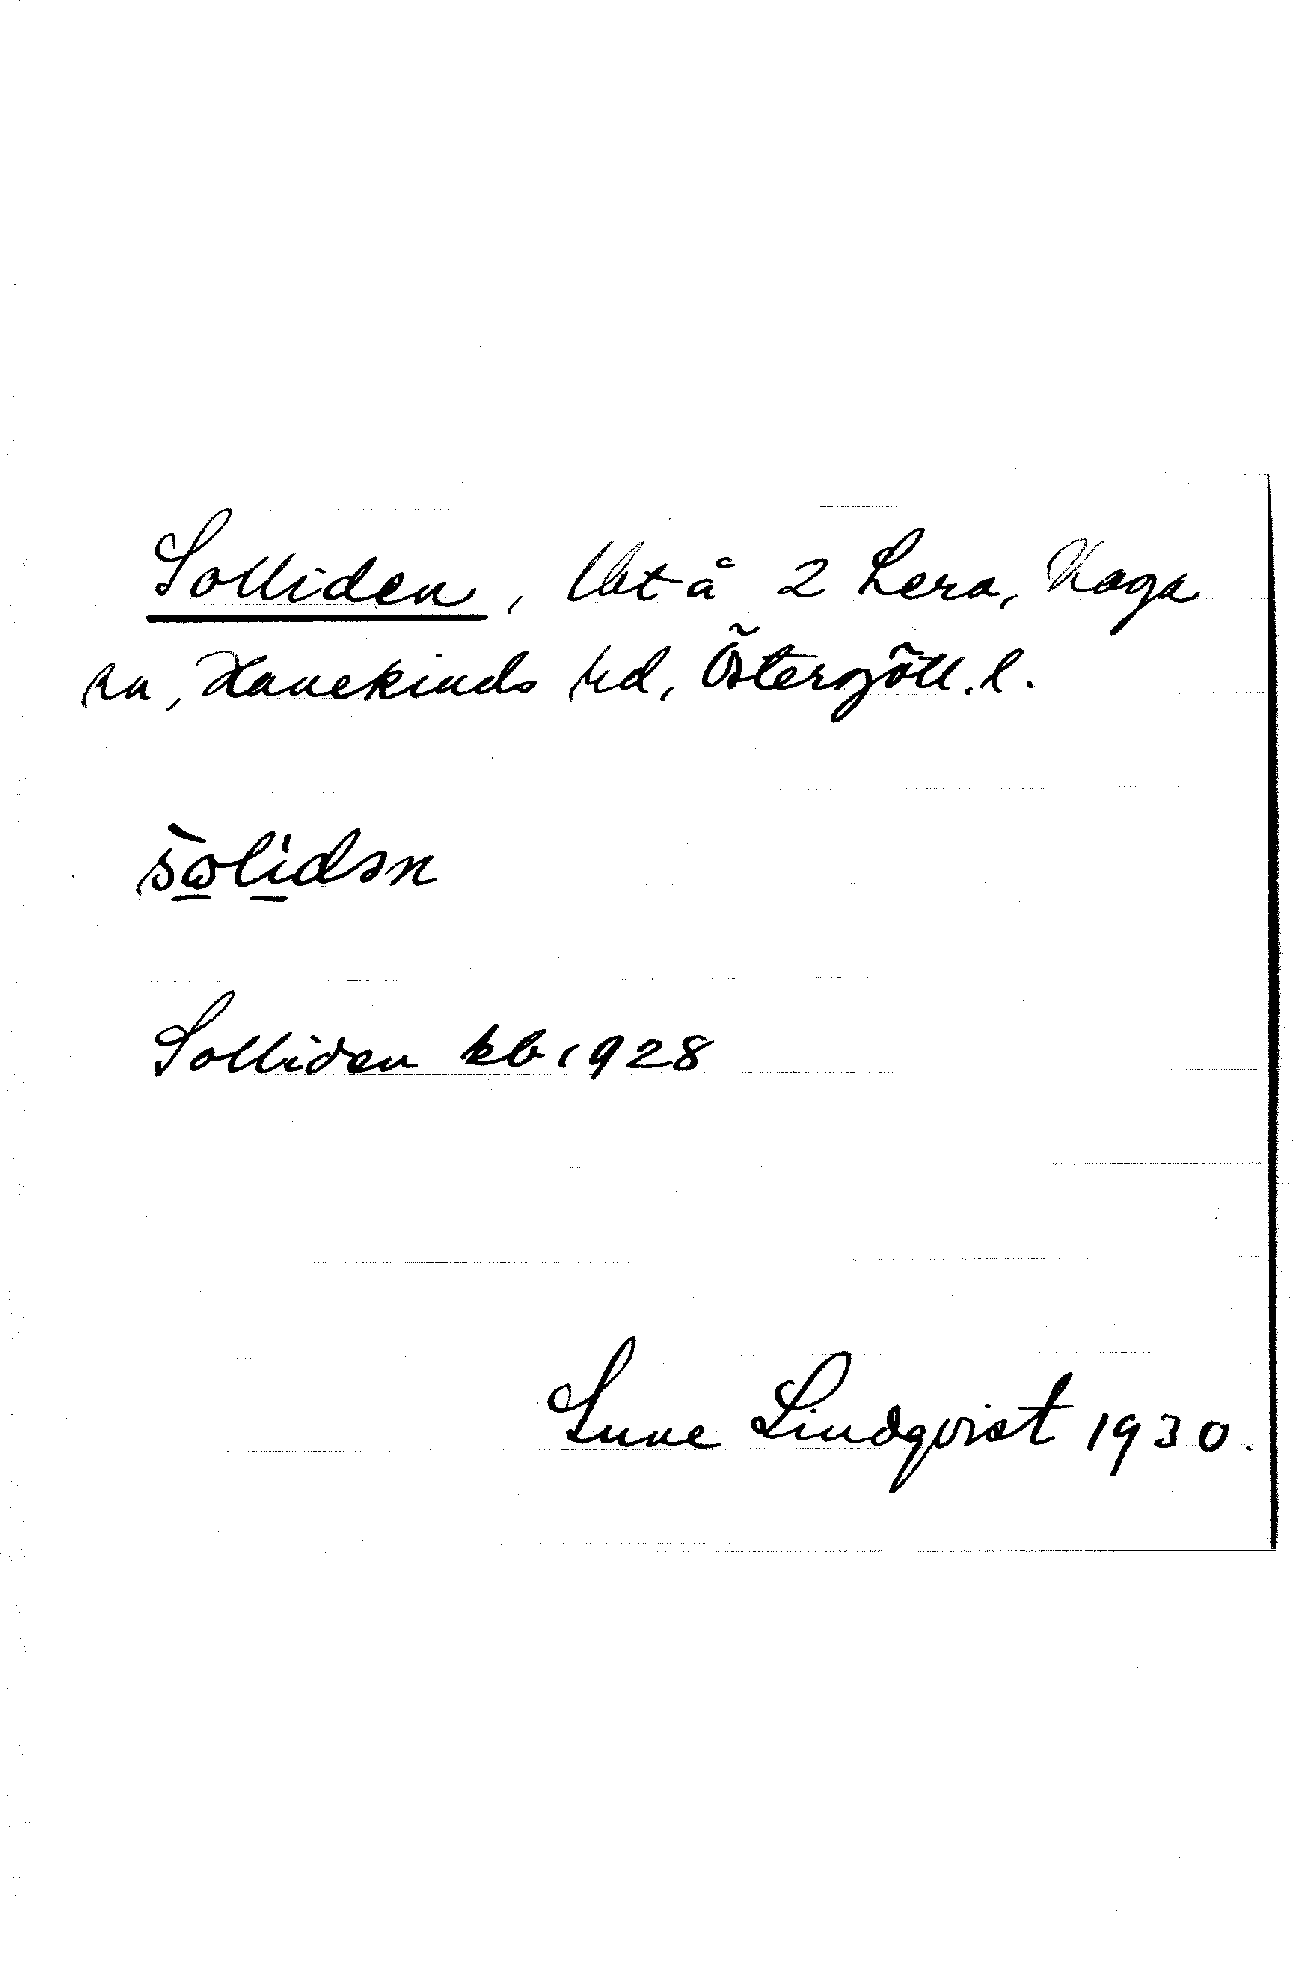 Solliden, lht å 2 Lera, Kaga
sn, Hanekinds hd, Östergötl. l.
sωlidən
Solliden kb 1928
Sune Lindqvist 1930.